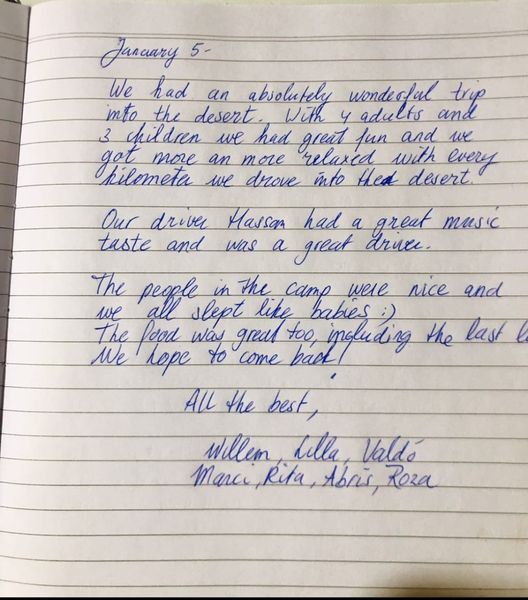 January 5-
We had an absolutely wonderful trip
into the desert. With 4 adults and
3 children we had great fun and we
got more an more relaxed with every
kilometer we drove into the desert.
Our driver Hassan had a great music
taste and was a great driver.
The people in the camp were nice and
we all slept like babies :)
The food was great too, including the last
We hope to come back!
All the best,
Willem, Lilla, Valdó
Marci, Rita, Abris, Roza